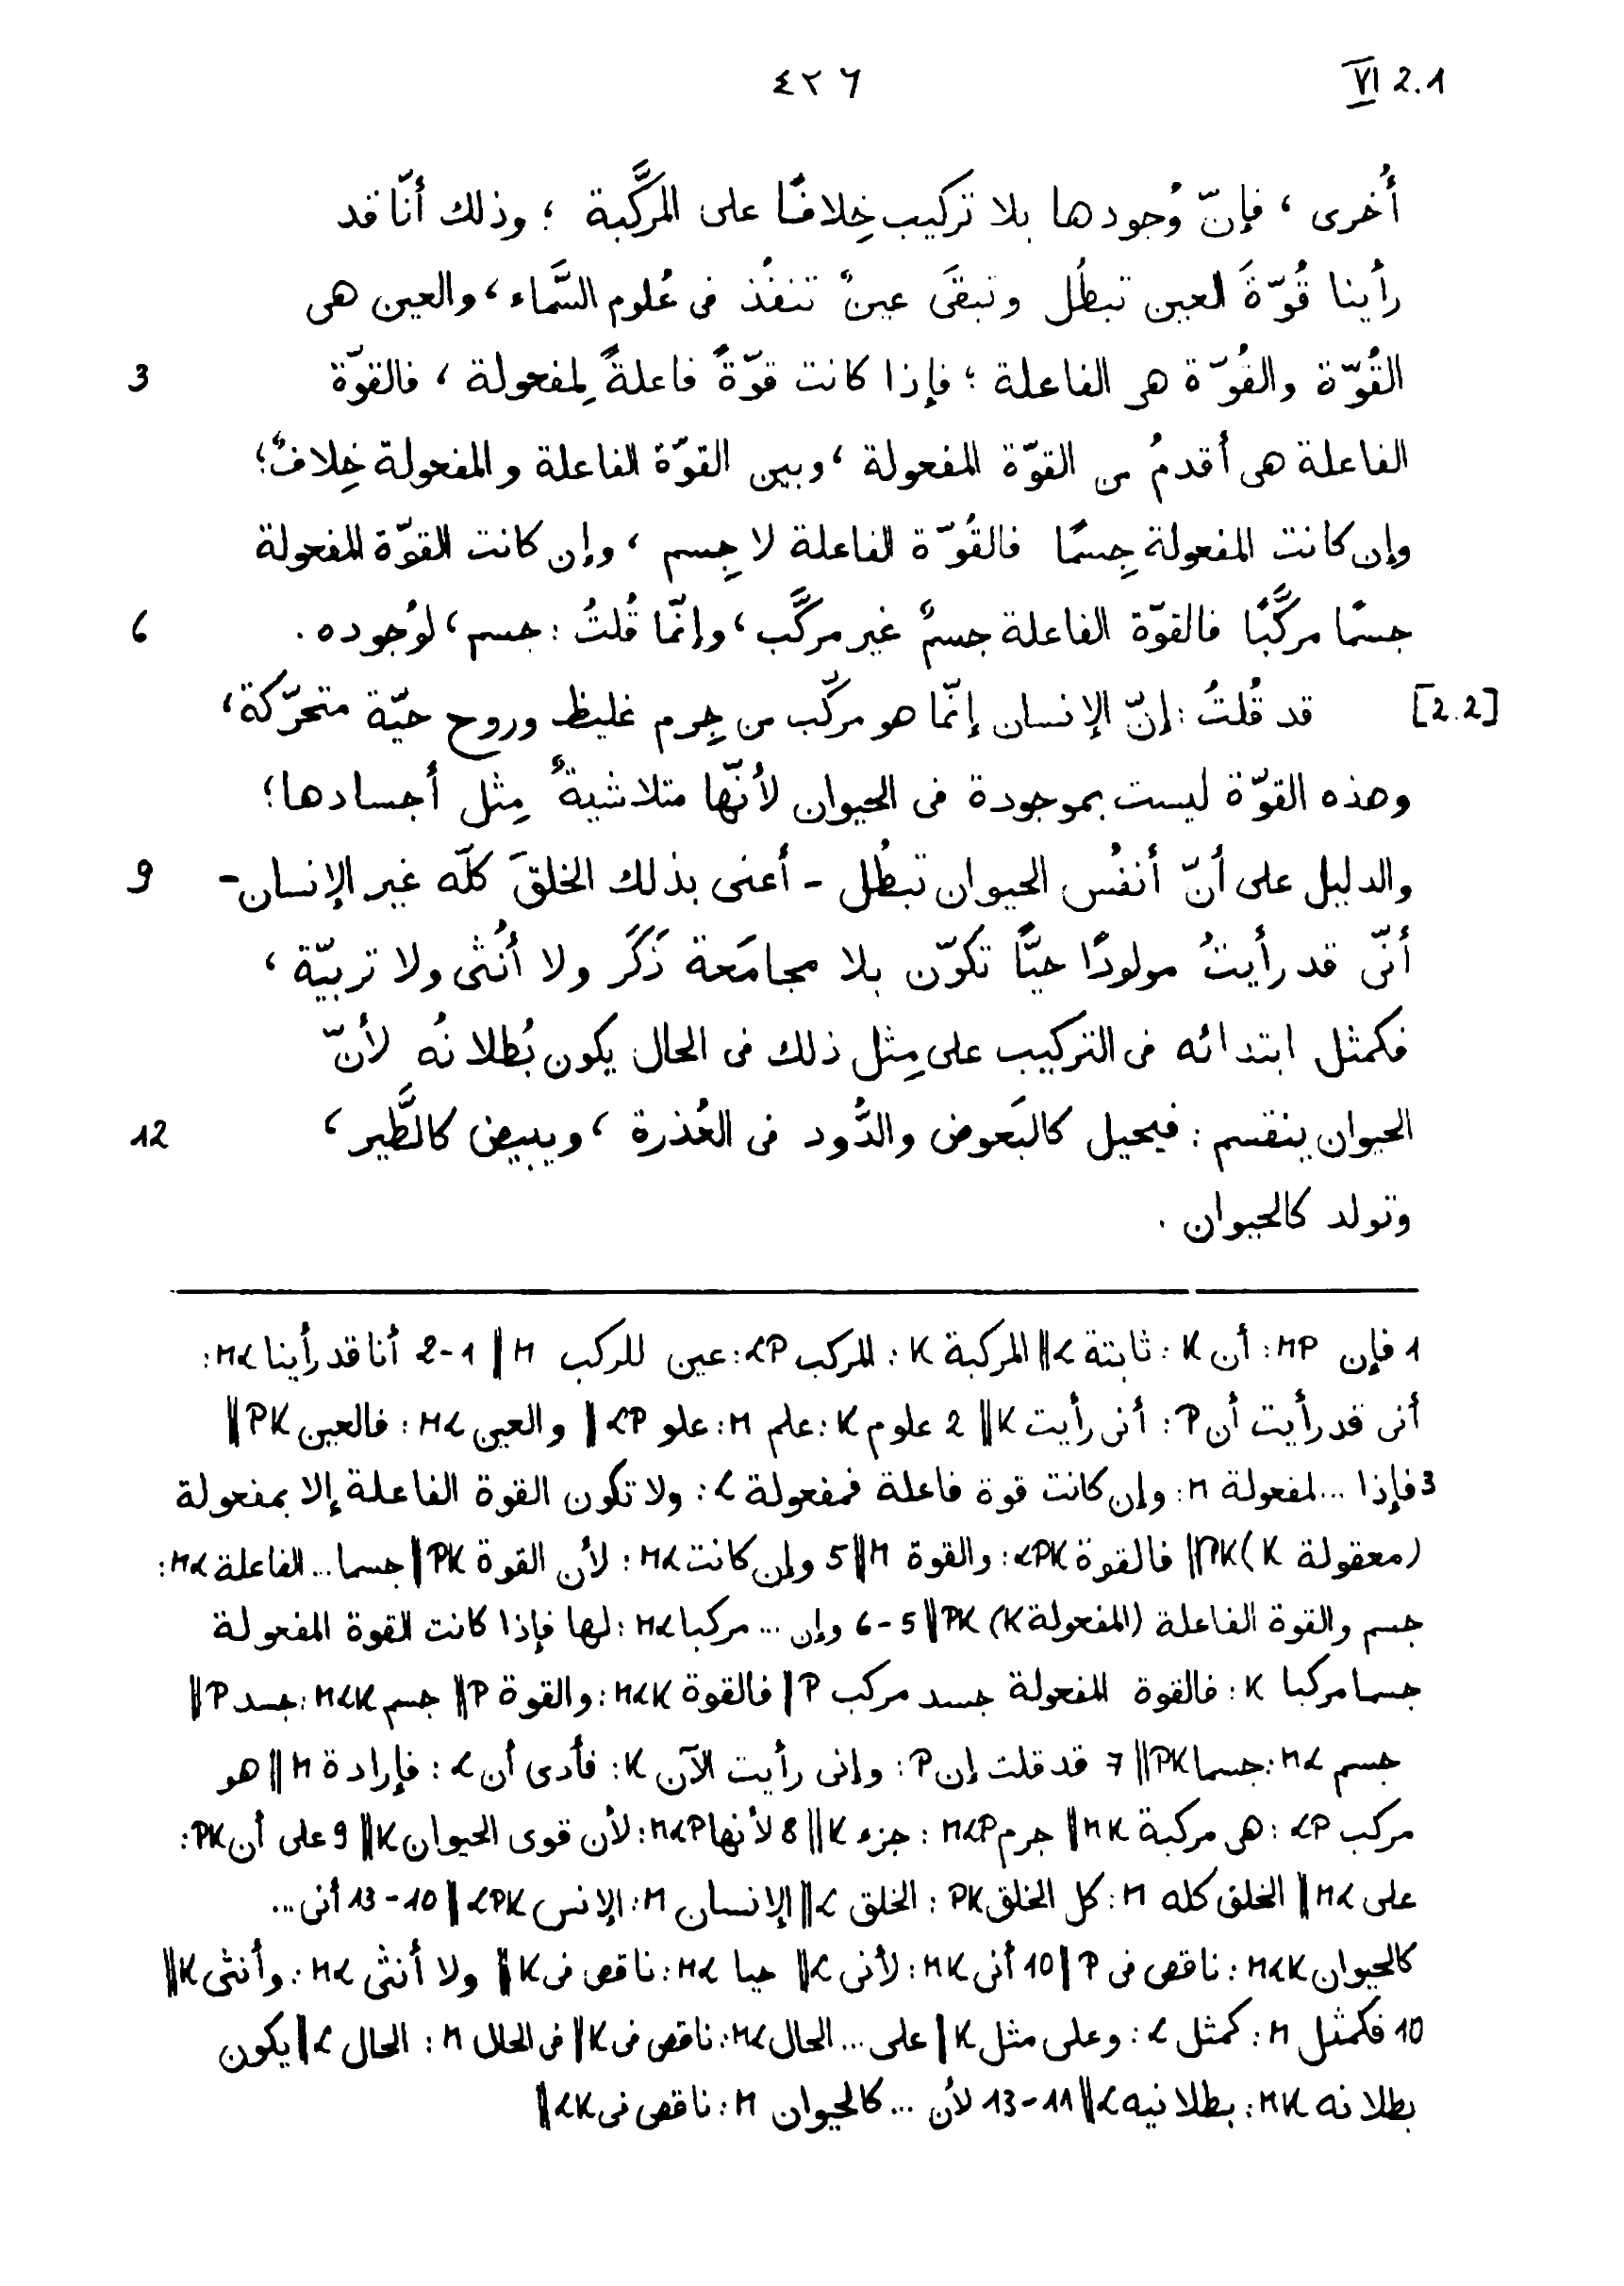 ٤٢٦ VI 2.1
أُخرى، فإنّ وُجودها بلا تركيب خِلافًا على المركَّبة؛ وذلك أنّا قد
رأينا قُوّةَ العين تبطُل وتبقَى عينٌ تنفُذ فى عُلوم السَّماء، والعين هى
3 القُوّة والقُوّة هى الفاعلة؛ فإذا كانت قوّةً فاعلةً لِمفعولة، فالقوّة
الفاعلة هى أقدمُ من القوّة المفعولة، وبين القوّة الفاعلة والمفعولة خِلافٌ؛
وإن كانت المفعولة جِسمًا فالقُوّة الفاعلة لا جِسم، وإن كانت القوّة المفعولة
6 جسمًا مركَّبًا فالقوّة الفاعلة جسمٌ غير مركَّب، وإنّما قُلتُ: جسم، لوُجوده.
[2.2] قد قُلتُ: إنّ الإنسان إنّما هو مركّب من جِرم غليظ وروح حيّة متحرّكة،
وهذه القوّة ليست بموجودة فى الحيوان لأنّها متلاشيةٌ مِثل أجسادها؛
9 والدليل على أنّ أنفُس الحيوان تبطُل - أعنى بذلك الخلقَ كلّه غير الإنسان -
أنّى قد رأيتُ مولودًا حيًّا تكوّن بلا مجامَعة ذَكَر ولا أُنثى ولا تربيّة،
فكمثل ابتدائه فى التركيب على مِثل ذلك فى الحال يكون بُطلانُه لأنّ
12 الحيوان ينقسم: فيحيل كالبَعوض والدُّود فى العُذرة، ويبيض كالطَّير،
وتولد كالحيوان.
1 فإن MP: أن K: ثابتة L ‖ المركبة K: المركب LP: عين للركب M ‖ 1-2 أنا قد رأينا ML:
أنى قد رأيت أن P: أنى رأيت K ‖ 2 علوم K: علم M: علو LP ‖ والعين ML: فالعين PK ‖
3 فإذا ... لمفعولة M: وإن كانت قوة فاعلة فمفعولة L: ولا تكون القوة الفاعلة إلا بمفعولة
(معقولة K) PK ‖ فالقوة LPK: والقوة M ‖ 5 وإن كانت ML: لأن القوة PK ‖ جسما ... الفاعلة ML:
جسم والقوة الفاعلة (المفعولة K) PK ‖ 5-6 وإن ... مركبا ML: لها فإذا كانت القوة المفعولة
جسما مركبا K: فالقوة المفعولة جسد مركب P ‖ فالقوة MLK: والقوة P ‖ جسم MLK: جسد P ‖
جسم ML: جسما PK ‖ 7 قد قلت إن P: وإنى رأيت الآن K: فأدى أن L: فإرادة M ‖ هو
مركب LP: هى مركبة MK ‖ جرم MLP: جزء K ‖ 8 لأنها MLP: لأن قوى الحيوان K ‖ 9 على أن PK:
على ML ‖ الخلق كله M: كل الخلق PK: الخلق L ‖ الإنسان M: الإنس LPK ‖ 10-13 أنى ...
كالحيوان MLK: ناقص فى P ‖ 10 أنى MK: لأنى L ‖ حيا ML: ناقص فى K ‖ ولا أنثى ML: وأنثى K ‖
10 فكمثل M: كمثل L: وعلى مثل K ‖ على ... الحال ML: ناقص فى K ‖ فى الحال M: الحال L ‖ يكون
بطلانه MK: بطلانيه L ‖ 11-13 لأن ... كالحيوان M: ناقص فى LK ‖